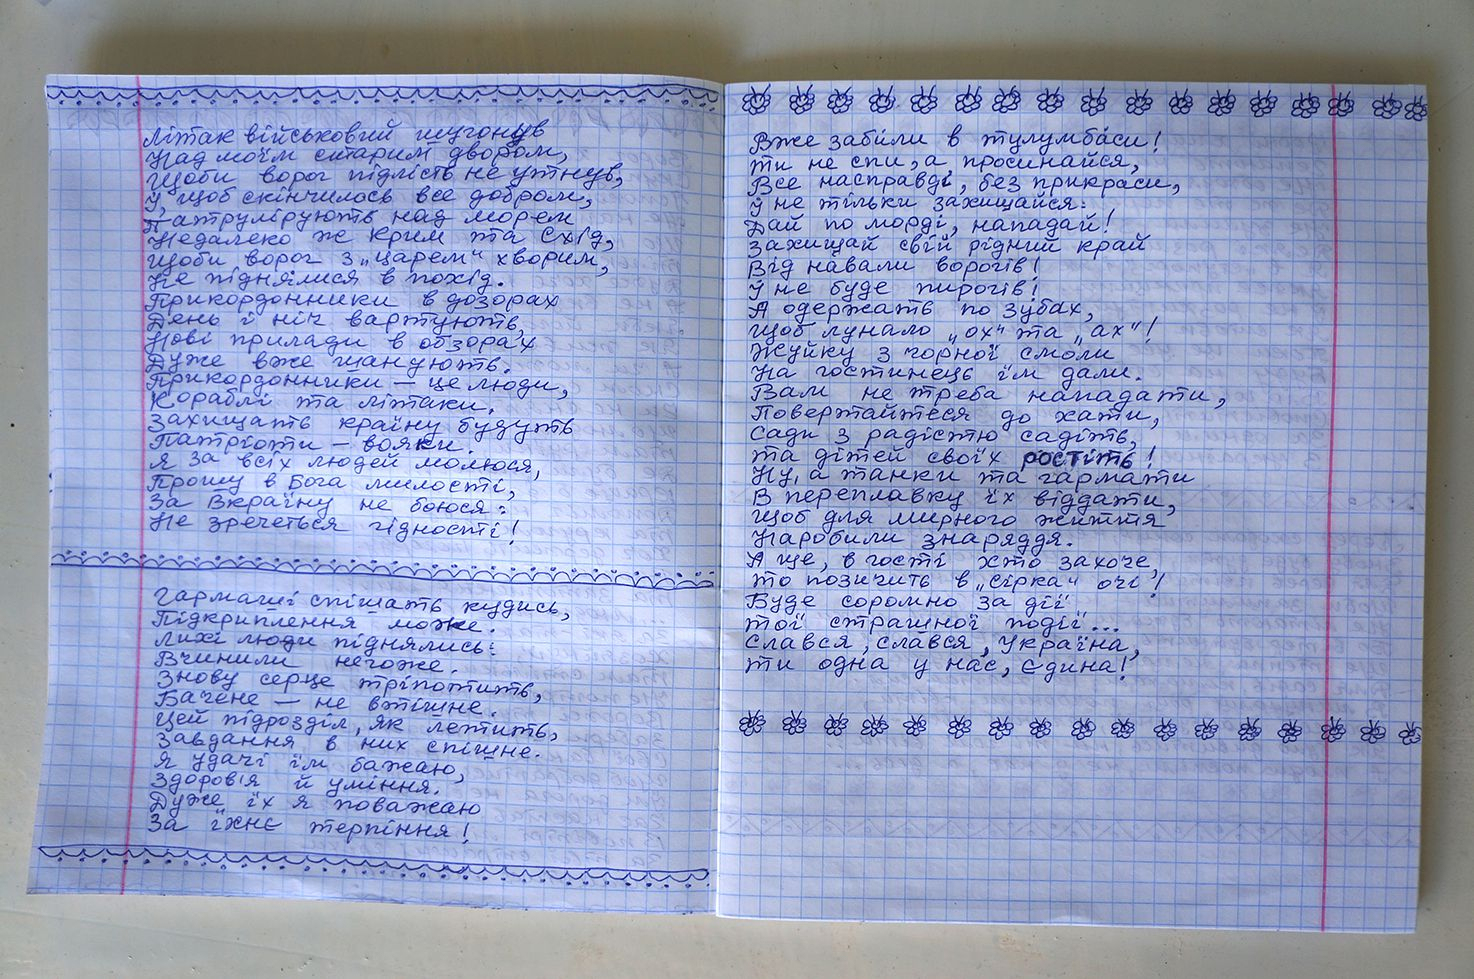 Літак військовий шугонув
Над моїм старим двором,
Щоби ворог підлість не утнув,
І, щоб скінчилось все добром,
Патрулірують над морем
Недалеко ж Крим та Схід,
Щоби ворог з „царем" хворим,
Не піднялися в похід.
Прикордонники в дозорах
День і ніч вартують,
Нові прилади в обзорах
Дуже вже шанують.
Прикордонники – це люди,
Кораблі та літаки.
Захищать країну будуть
Патріоти – вояки.
Я за всіх людей молюся,
Прошу в Бога милості,
За Вкраїну не боюся:
Не зречеться гідності!
Гармаші спішать кудись,
Підкриплення може.
Лихі люди піднялись:
Вчинили негоже.
Знову серце тріпотить,
Бачене – не втішне.
Цей підрозділ, як летить,
Завдання в них спішне.
Я удачі їм бажаю,
Здоров'я й уміння.
Дуже їх я поважаю
За їхнє терпіння!
Вже забили в тулумбаси!
Ти не спи, а просинайся,
Все насправді, без прикраси,
І не тільки захищайся:
Дай по морді, нападай!
Захищай свій рідний край
Від навали ворогів!
І не буде пирогів!
А одержать по зубах,
Щоб лунало „ох" та „ах"!
Жуйку з чорної смоли
На гостинець їм дали.
Вам не треба нападати,
Повертайтеся до хати,
Сади з радістю садіть,
Та дітей своїх ростіть!
Ну, а танки та гармати
В переплавку їх віддати,
Щоб для мирного життя
Наробили знаряддя.
А ще, в гості хто захоче,
То позичить в „сірка" очі!
Буде соромно за дії
Тої страшної події...
Слався, слався, Україна,
Ти одна у нас, єдина!